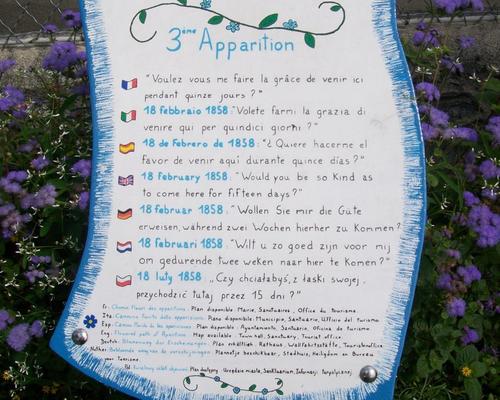 3ème Apparition
"Voulez vous me faire la grâce de venir ici
pendant quinze jours ?"
18 febbraio 1858: "Volete farmi la grazia di
venire qui per quindici giorni ?"
18 de Febrero de 1858: "¿ Quiere hacerme el
favor de venir aquí durante quince días ?"
18 february 1858: "Would you be so kind as
to come here for fifteen days ?"
18 februar 1858: "Wollen Sie mir die Güte
erweisen, während zwei Wochen hierher zu Kommen ?
18 februari 1858: "Wilt u zo goed zijn voor mij
om gedurende twee weken naar hier te komen ?"
18 luty 1858: „Czy chciałabyś, z łaski swojej,
przychodzić tutaj przez 15 dni ?"
Fr: Chemin Fleuri des apparitions: Plan disponible Mairie, Sanctuaires, Office du tourisme
Ita: Cammino fiorito delle apparizioni: Piano disponibile Municipio, Santuario, Ufficio del turismo
Esp: Camino Florido de las apariciones: Plan disponible: Ayuntamiento, Santuario, Oficina de turismo
Eng: Flowered path of Aparitions: Map available: Town hall, Sanctuary, Tourist office
Deutsh: Plan erhältlich: Rathaus, Wallfahrtsstätte,
beschikbaar, Stadhuis, Heiligdom en Bureau
voor Toerisme
Pol: Kwiatowy szlak objawień: Plan dostępny: Urzędzie miasta, Sanktuarium,